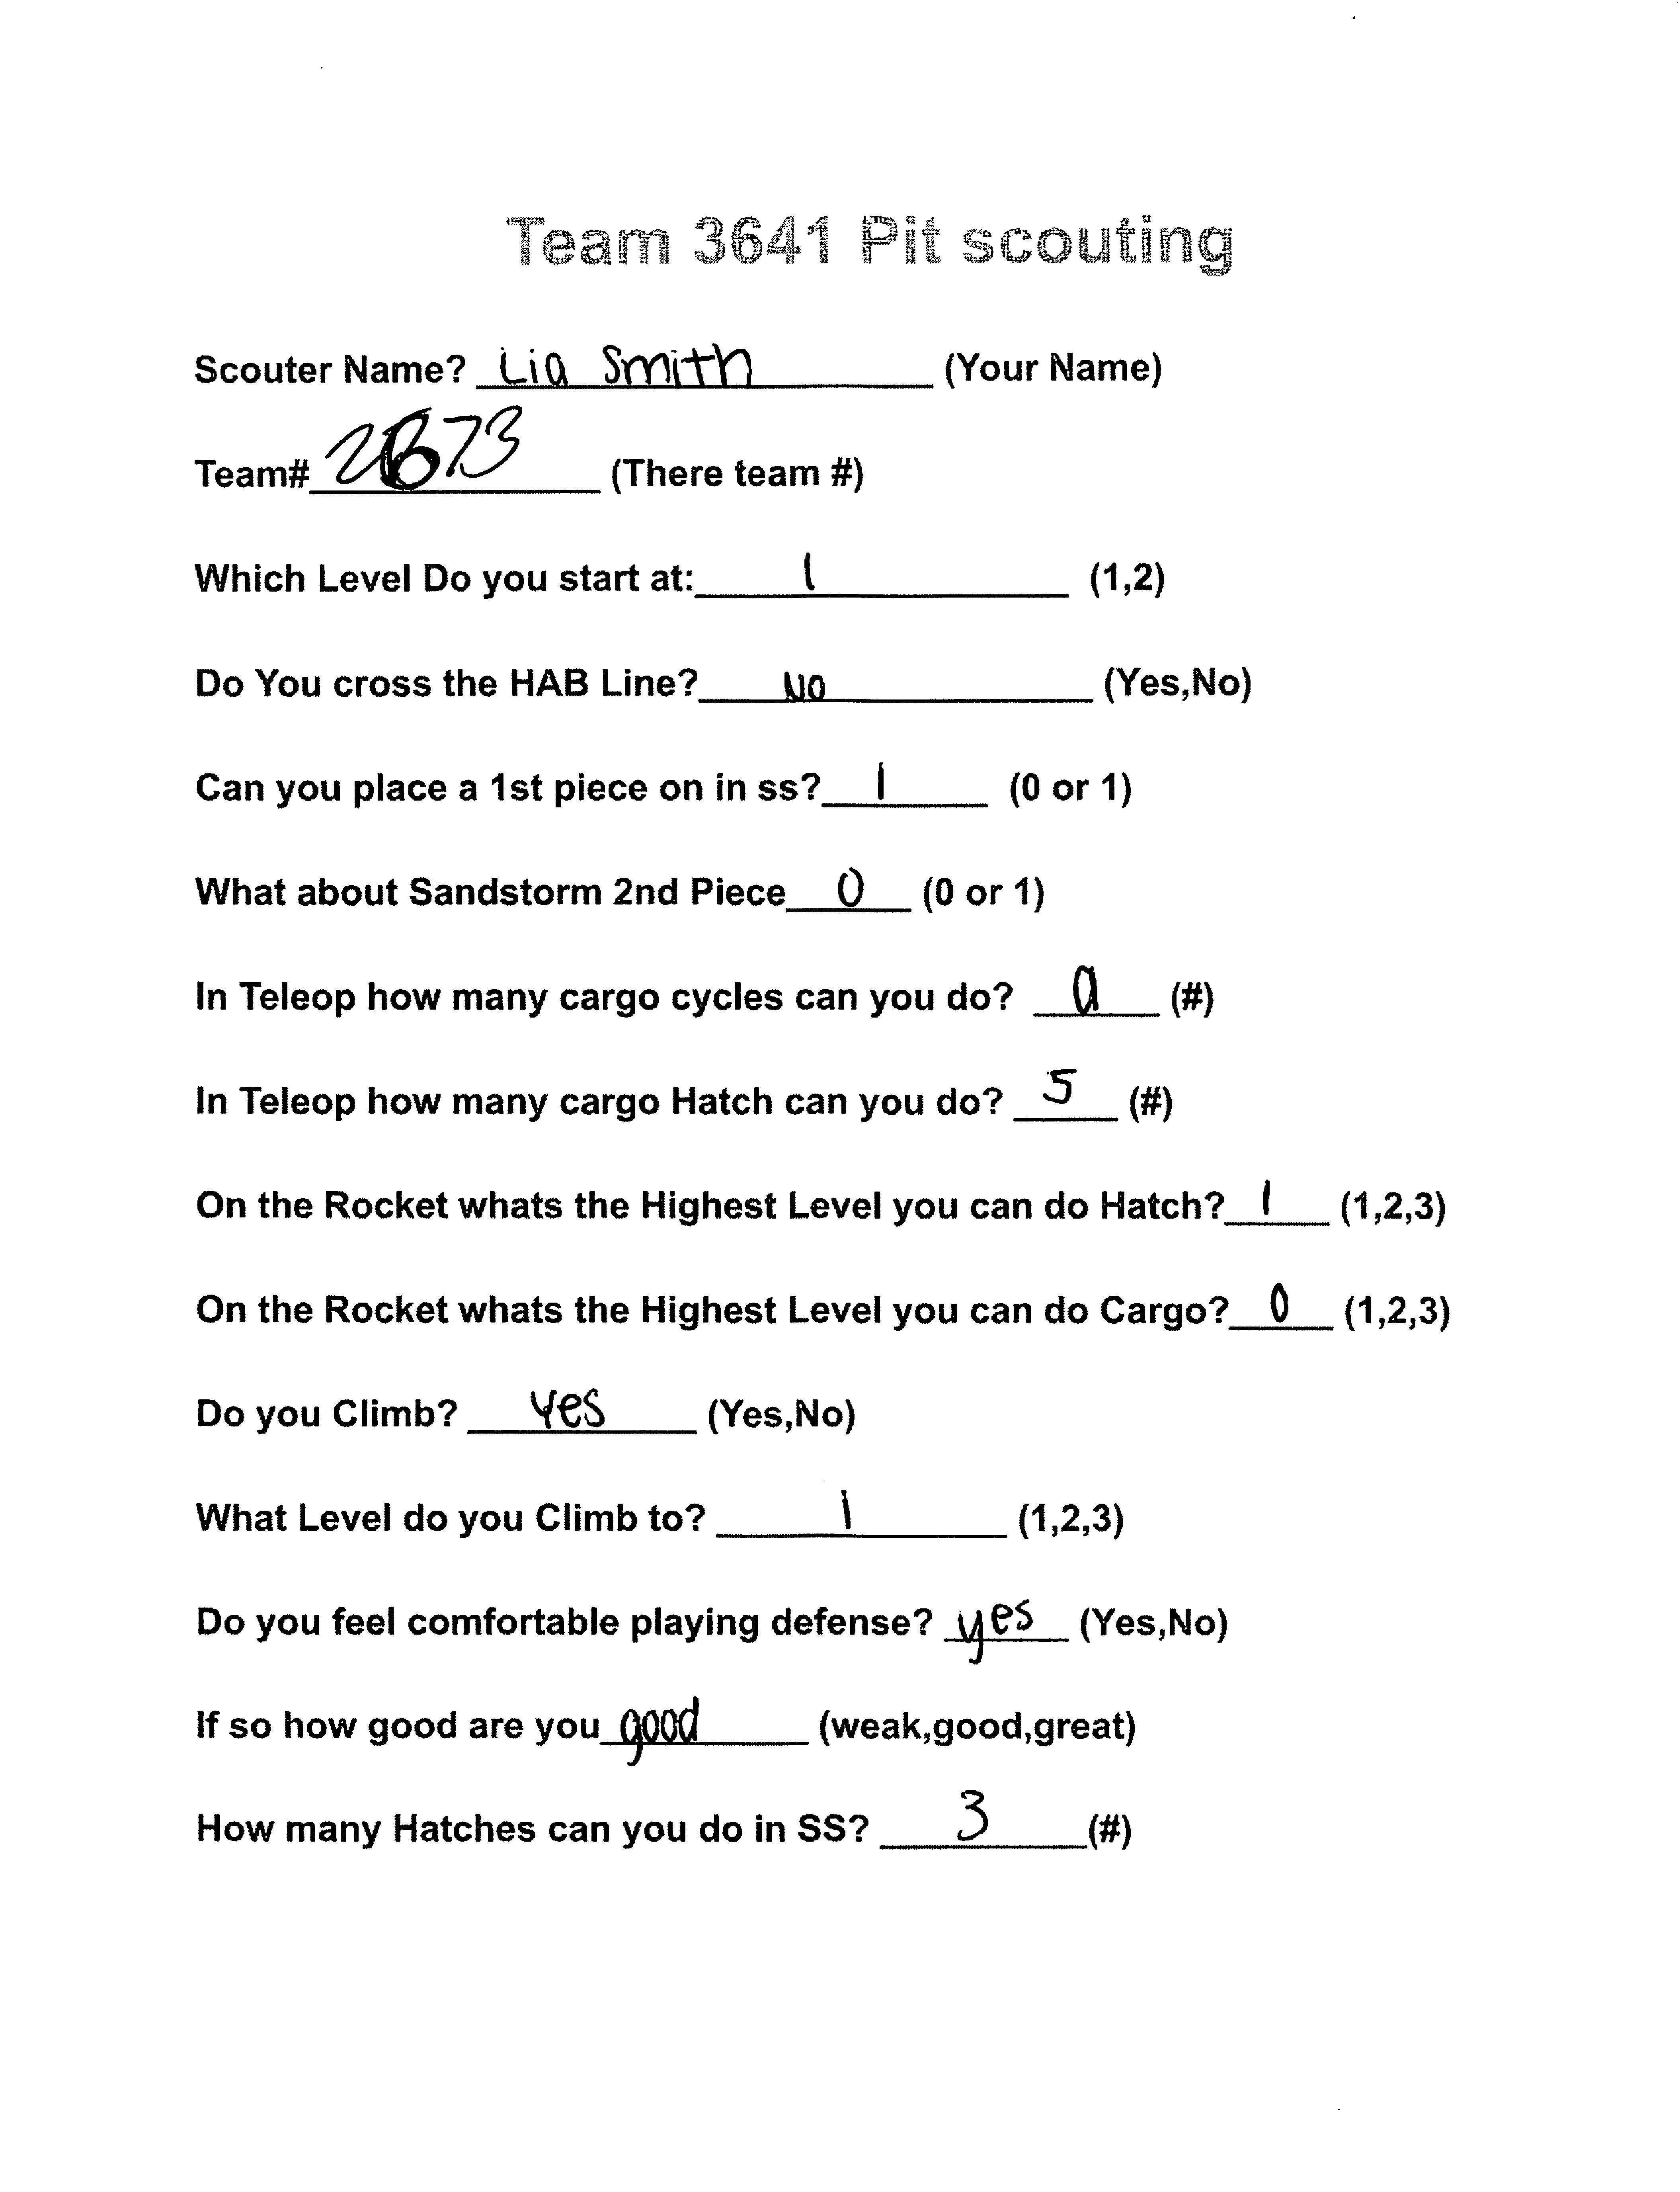 Team 3641 Pit scouting
Scouter Name? Lia Smith (Your Name)
Team# 2673 (There team #)
Which Level Do you start at: 1 (1,2)
Do You cross the HAB Line? No (Yes,No)
Can you place a 1st piece on in ss? 1 (0 or 1)
What about Sandstorm 2nd Piece 0 (0 or 1)
In Teleop how many cargo cycles can you do? 0 (#)
In Teleop how many cargo Hatch can you do? 5 (#)
On the Rocket whats the Highest Level you can do Hatch? 1 (1,2,3)
On the Rocket whats the Highest Level you can do Cargo? 0 (1,2,3)
Do you Climb? Yes (Yes,No)
What Level do you Climb to? 1 (1,2,3)
Do you feel comfortable playing defense? yes (Yes,No)
If so how good are you good (weak,good,great)
How many Hatches can you do in SS? 3 (#)